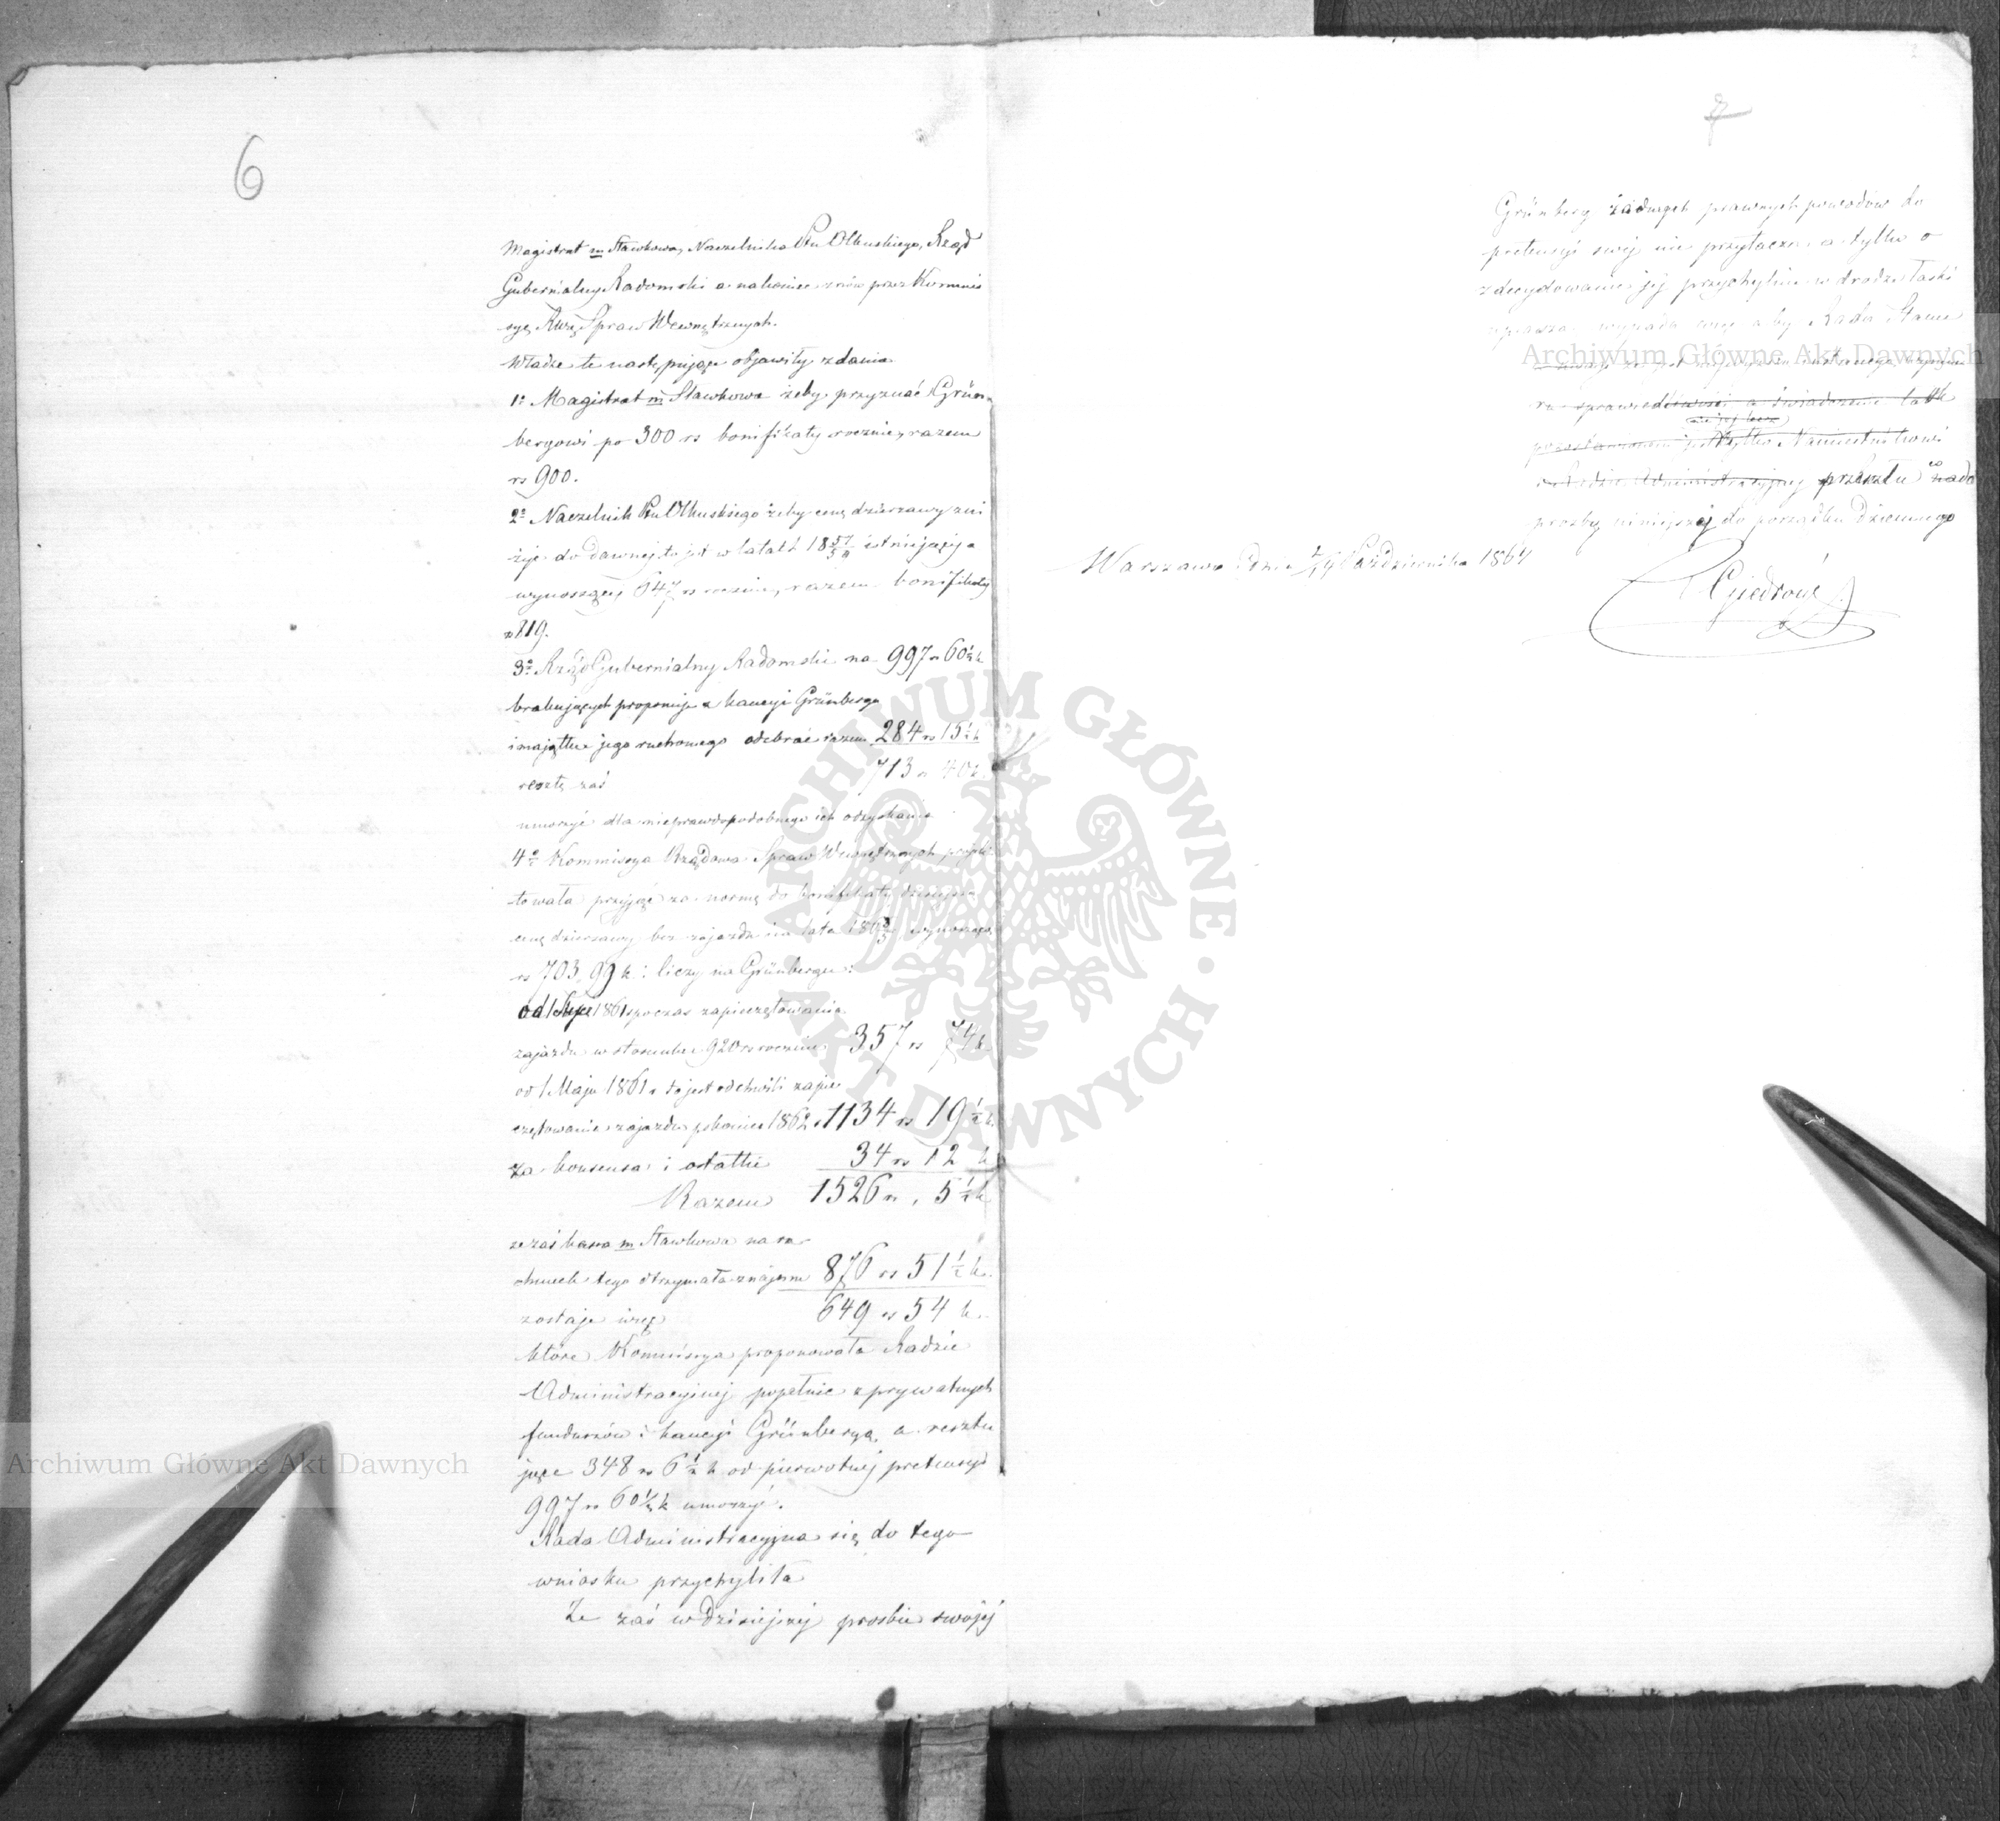 6
Magistrat m. Sławkowa, Naczelnika Ptu Olkuskiego, Rząd
Gubernialny Radomski a nakoniec znów przez Kommis
syę Rzą Spraw Wewnętrznych.
Władze te następujące objawiły zdania.
1o Magistrat m Sławkowa żeby przyznać Grün
bergowi po 300 rs bonifikaty rocznie, razem
rs 900.
2o Naczelnik Ptu Olkuskiego żeby cenę dzierżawy zni
żyć do dawnej to jest w latach 18 istniejącej a
wynoszącej 647 rs rocznie, razem bonifikaty
rs 819.
3o Rząd Gubernialny Radomski na 997 rs 60½ k
brakujących proponuje z kaucyi Grünberga
i majątku jego ruchomego odebrać razem 284 rs 15½ k
resztę zaś 713 rs 40 k.
umorzyć dla nieprawdopodobnego ich odzyskania
4o Kommissya Rządowa Spraw Wewnętrznych projek
towała przyjąć za normę do bonifikaty dzisiejszą
cenę dzierżawy bez zajazdu na lata 186 wynoszącą
rs 703, 99 k: liczy na Grünbergu:
od 1 1861 spoczas zapieczętowania
zajazdu w stosunku 920 rs rocznie 357 rs 74 k.
od 1 Maja 1861 r to jest od chwili zapie
czętowania zajazdu po koniec 1862 r 1134 rs 19½ k.
za konsensa i ostatki 34 rs 12 k
Razem 1526 rs, 5½ k
że zaś kassa m Sławkowa na ra
chunek tego otrzymała z najmu 876 rs 51½ k.
zostaje więc 649 rs 54 k.
które Kommissya proponowała Radzie
Administracyjnej popełnić z prywatnych
funduszów i kaucyi Grünberga, a resztu
jące 348 rs 6½ k od pierwotnej pretensyi
997 rs 60½ k umorzyć.
Rada Administracyjna się do tego
wniosku przychyliła
Że zaś w dzisiejszej prośbie swojej
7
Grünberg żadnych prawnych powodów do
pretensyi swej nie przytacza a tylko o
zdecydowanie jej przychylnie w drodze łaski
uprasza wypada więc aby Rada Stanu
sprawiedliwości a świadczenie łask
nie jej lecz
pozostawionem jest tylko Namiestnikowi
i Radzie Administracyjnej przeszła co do
prośby niniejszej do porządku dziennego
Warszawa dnia 2/14 Października 1864
Giedroyć
Archiwum Główne Akt Dawnych
Archiwum Główne Akt Dawnych
ARCHIWUM GŁÓWNE · AKT DAWNYCH ·